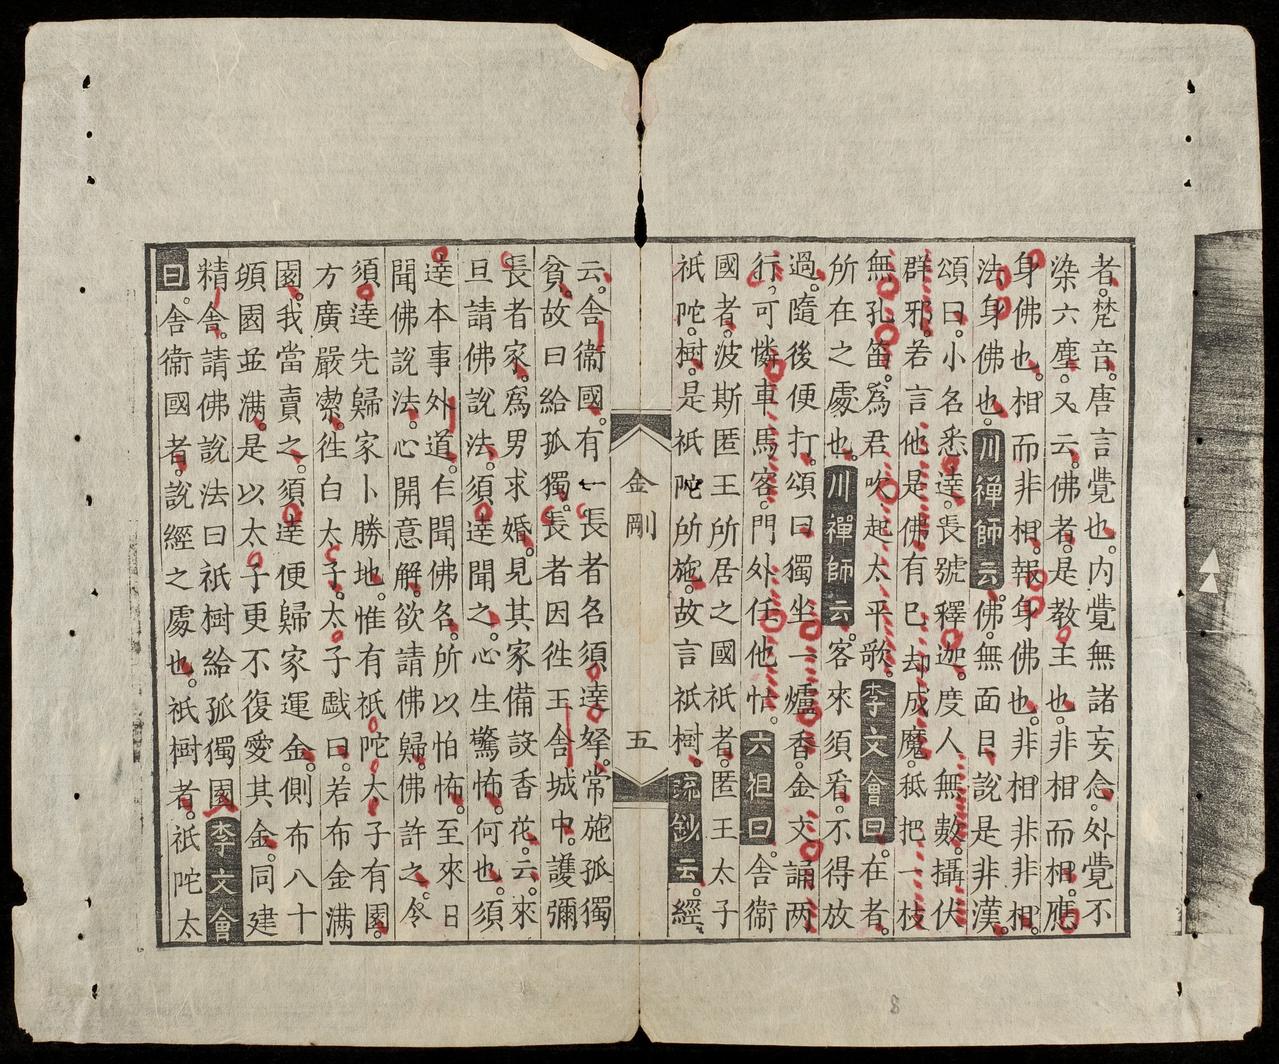 者。梵音。唐言覺也。内覺無諸妄念。外覺不
染六塵。又云。佛者。是教主也。非相而相。應
身佛也。相而非相。報身佛也。非相非非相。
法身佛也。川禪師云。佛。無面目。說是非漢。
頌曰。小名悉達。長號釋迦。度人無數。攝伏
群邪。若言他是佛。有已却成魔。秪把一枝
無孔笛。爲君吹起太平歌。李文會曰。在者。
所在之處也。川禪師云。客來須看。不得放
過。隨後便打。頌曰。獨坐一爐香。金文誦两
行。可憐車馬客。門外任他忙。六祖曰。舍衞
國者。波斯匿王所居之國。祇者。匿王太子
祇陀。樹。是祇陀所施。故言祇樹。疏鈔云。經
金剛
五
云。舍衞國。有一長者名須達拏。常施孤獨
貧。故曰給孤獨。長者因徃王舍城中。護彌
長者家。爲男求婚。見其家備設香花。云。來
旦請佛說法。須達聞之。心生驚怖。何也。須
達本事外道。乍聞佛名。所以怕怖。至來日
聞佛說法。心開意解。欲請佛歸。佛許之。令
須達先歸家卜勝地。惟有祇陀太子有園。
方廣嚴潔。徃白太子。太子戲曰。若布金满
園。我當賣之。須達便歸家運金。側布八十
頃。園並满。是以太子更不復愛其金。同建
精舍。請佛說法。曰祇樹給孤獨園。李文會
曰。舍衞國者。說經之處也。祇樹者。祇陀太